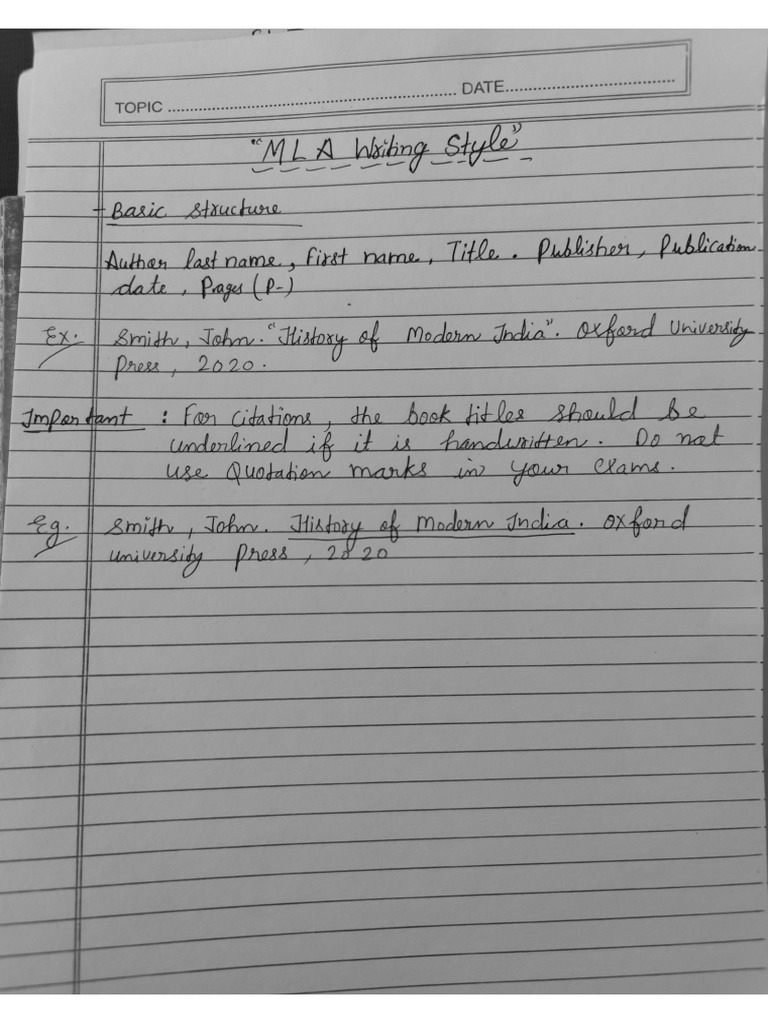 TOPIC ........................................ DATE........................................
"MLA Writing Style"
Basic Structure
Author last name, First name, Title. Publisher, Publication
date, Pages (P-)
Ex. Smith, John. "History of Modern India". Oxford University
Press, 2020.
Important : For Citations, the book titles should be
underlined if it is handwritten. Do not
use Quotation marks in your exams.
Eg. Smith, John. History of Modern India. Oxford
university press, 2020